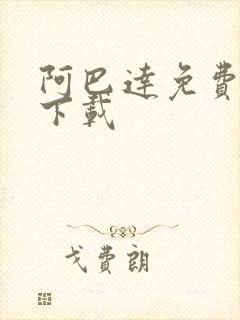 阿巴達免費
下載
戈費朗